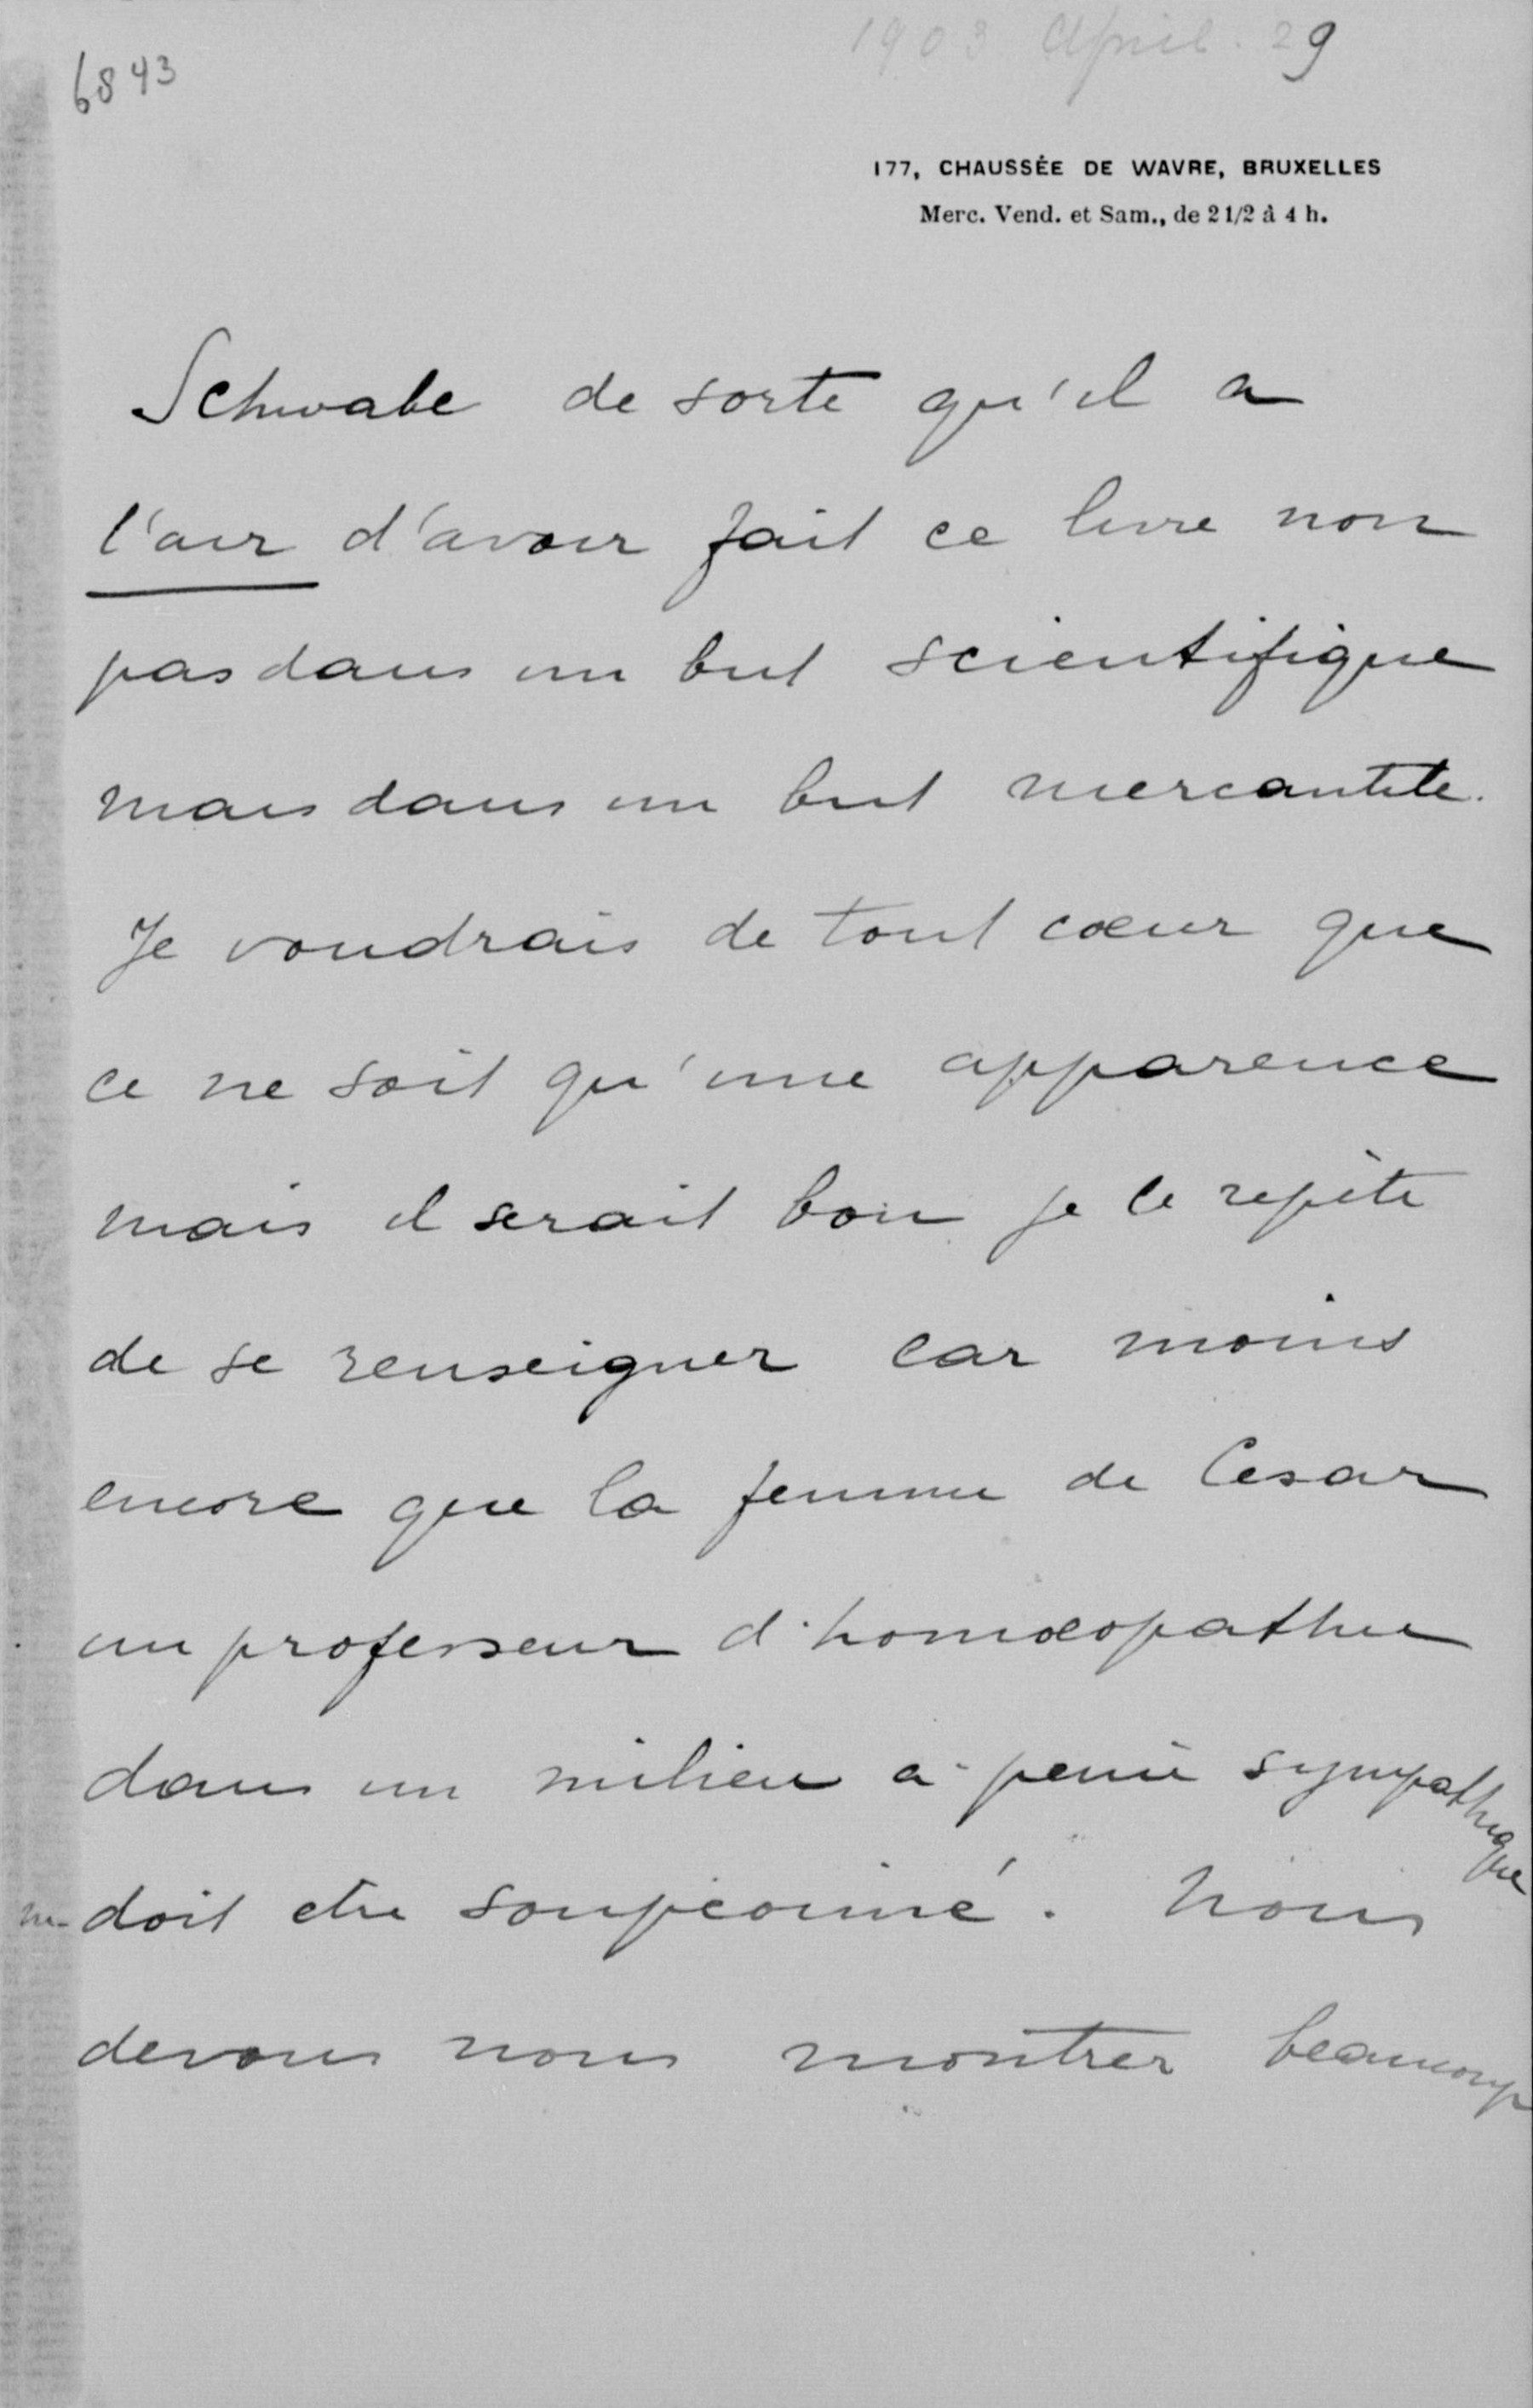 6843
1903 April. 29
177, CHAUSSÉE DE WAVRE, BRUXELLES
Merc. Vend. et Sam., de 2 1/2 à 4 h.
Schwabe de sorte qu'il a
l'air d'avoir fait ce livre non
pas dans un but scientifique
mais dans un but mercantile.
Je voudrais de tout cœur que
ce ne soit qu'une apparence
mais il serait bon je le repète
de se renseigner car moins
encore que la femme de Cesar
un professeur d'homœopathie
dans un milieu a peine sympathique
ne doit etre soupçonné. Nous
devons nous montrer beaucoup